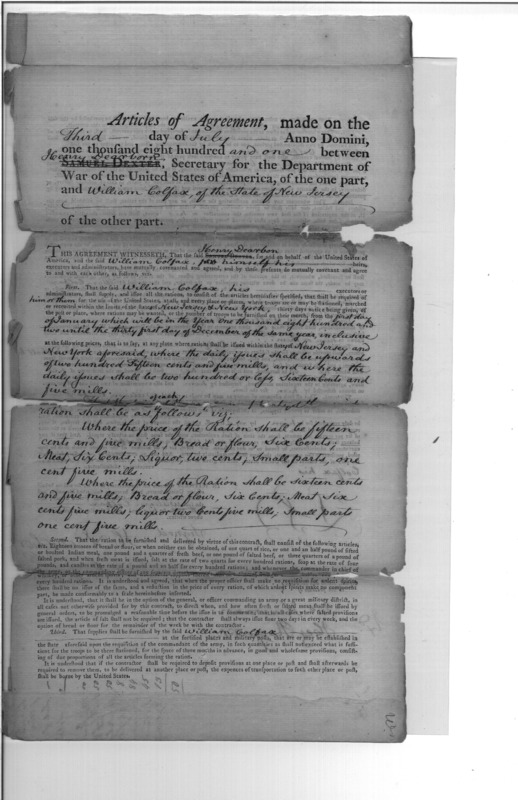 Articles of Agreement, made on the
Third — day of July — Anno Domini,
one thousand eight hundred and one between
Henry Dearborn
SAMUEL DEXTER, Secretary for the Department of
War of the United States of America, of the one part,
and William Colfax, of the State of New Jersey
of the other part.
Henry Dearborn
THIS AGREEMENT WITNESSETH, That the said for and on behalf of the United States of
America, and the said William Colfax, for himself his heirs,
executors and administrators, have mutually covenanted and agreed, and by these presents do mutually covenant and agree
to and with each other, as follows, viz.
First. That the said William Colfax, his executors or
administrators, shall supply, and issue all the rations, to consist of the articles hereinafter specified, that shall be required of
him or them for the use of the United States, at all, and every place or places, where troops are or may be stationed, marched
or recruited within the limits of the States of New Jersey & New York, thirty days notice being given, of
the post or place, where rations may be wanted, or the number of troops to be furnished on their march, from the first day
of January which will be in the Year One thousand eight hundred and
two until the thirty first day of December of the same year, inclusive
at the following prices, that is to say, at any place where rations shall be issued within the States of New Jersey and
New York aforesaid, where the daily issues shall be upwards
of two hundred Fifteen cents and five mills, and where the
daily issues shall be two hundred or less, Sixteen Cents and
five mills.
ration shall be as follows Viz;
Where the price of the Ration shall be fifteen
cents and five mills; Bread or flour, Six Cents;
Meat, Six Cents; Liquor, two cents; Small parts, one
cent five mills.
Where the price of the Ration shall be sixteen cents
and five mills; Bread or flour, Six Cents; Meat Six
cents five mills; liquor two Cents five mills; Small parts
one cent five mills.
Second. That the ration to be furnished and delivered by virtue of this contract, shall consist of the following articles,
viz. Eighteen ounces of bread or flour, or when neither can be obtained, of one quart of rice, or one and an half pound of sifted
or bolted Indian meal, one pound and a quarter of fresh beef, or one pound of salted beef, or three quarters of a pound of
salted pork, and when fresh meat is issued, salt at the rate of two quarts for every hundred rations, soap at the rate of four
pounds, and candles at the rate of a pound and an half for every hundred rations;
every hundred rations. It is understood and agreed, that when the proper officer shall make no requisition for ardent spirits
there shall be no issue of the same, and a reduction in the price of every ration, of which ardent spirits make no component
part, be made conformably to a scale hereinbefore inserted.
It is understood, that it shall be in the option of the general, or officer commanding an army or a great military district, in
all cases not otherwise provided for by this contract, to direct when, and how often fresh or salted meat shall be issued by
general orders, to be promulged a reasonable time before the issue is to commence, that in all cases where salted provisions
are issued, the article of salt shall not be required; that the contractor shall always issue flour two days in every week, and the
option of bread or flour for the remainder of the week be with the contractor.
Third. That supplies shall be furnished by the said William Colfax
at the fortified places and military posts, that are or may be established in
the State aforesaid upon the requisition of the commandant of the army, in such quantities as shall not exceed what is suffi-
cient for the troops to be there stationed, for the space of three months in advance, in good and wholesome provisions, consist-
ing of due proportions of all the articles forming the ration.
It is understood that if the contractor shall be required to deposite provisions at one place or post and shall afterwards be
required to remove them, to be delivered at another place or post, the expences of transportation to such other place or post,
shall be borne by the United States.